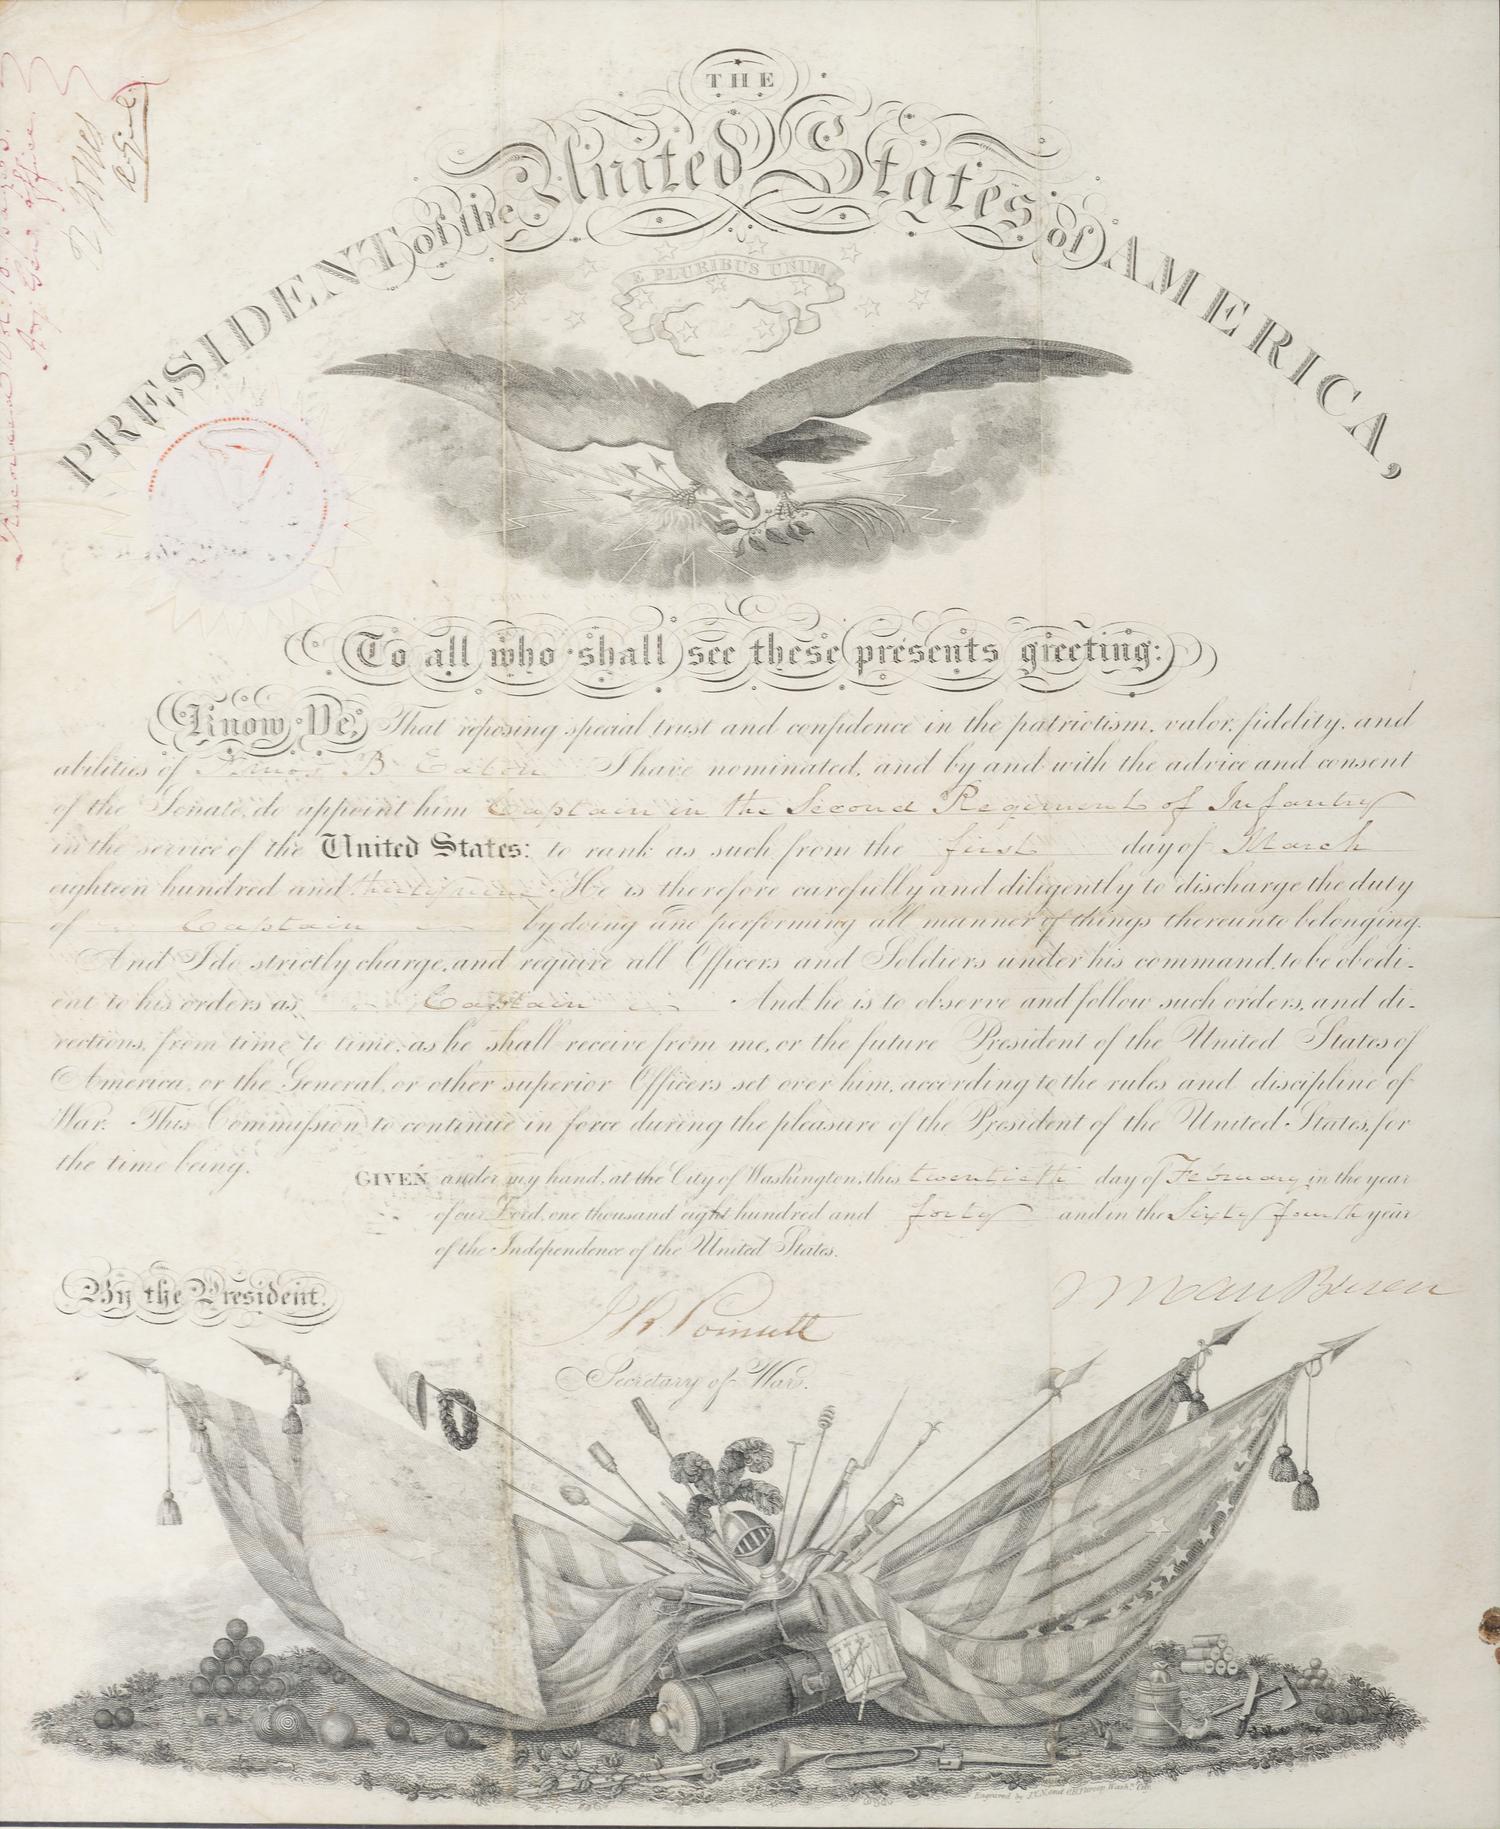 THE
PRESIDENT of the United States of AMERICA,
E PLURIBUS UNUM
To all who shall see these presents greeting:
Know Ye, That reposing special trust and confidence in the patriotism, valor, fidelity, and
abilities of Amos B Eaton I have nominated, and by and with the advice and consent
of the Senate, do appoint him Captain in the Second Regiment of Infantry
in the service of the United States: to rank as such from the first day of March
eighteen hundred and He is therefore carefully and diligently to discharge the duty
of Captain by doing and performing all manner of things thereunto belonging.
And I do strictly charge, and require all Officers and Soldiers under his command, to be obedi-
ent to his orders as Captain And he is to observe and follow such orders, and di-
rections, from time to time, as he shall receive from me, or the future President of the United States of
America, or the General, or other superior Officers set over him, according to the rules and discipline of
War. This Commission to continue in force during the pleasure of the President of the United States, for
the time being.
GIVEN under my hand, at the City of Washington, this twentieth day of February in the year
of our Lord, one thousand eight hundred and forty and in the Sixty fourth year
of the Independence of the United States.
By the President,
M Van Buren
J R Poinsett
Secretary of War.
R Jones
A. Genl.
Adj. Genl's Office
Engraved by